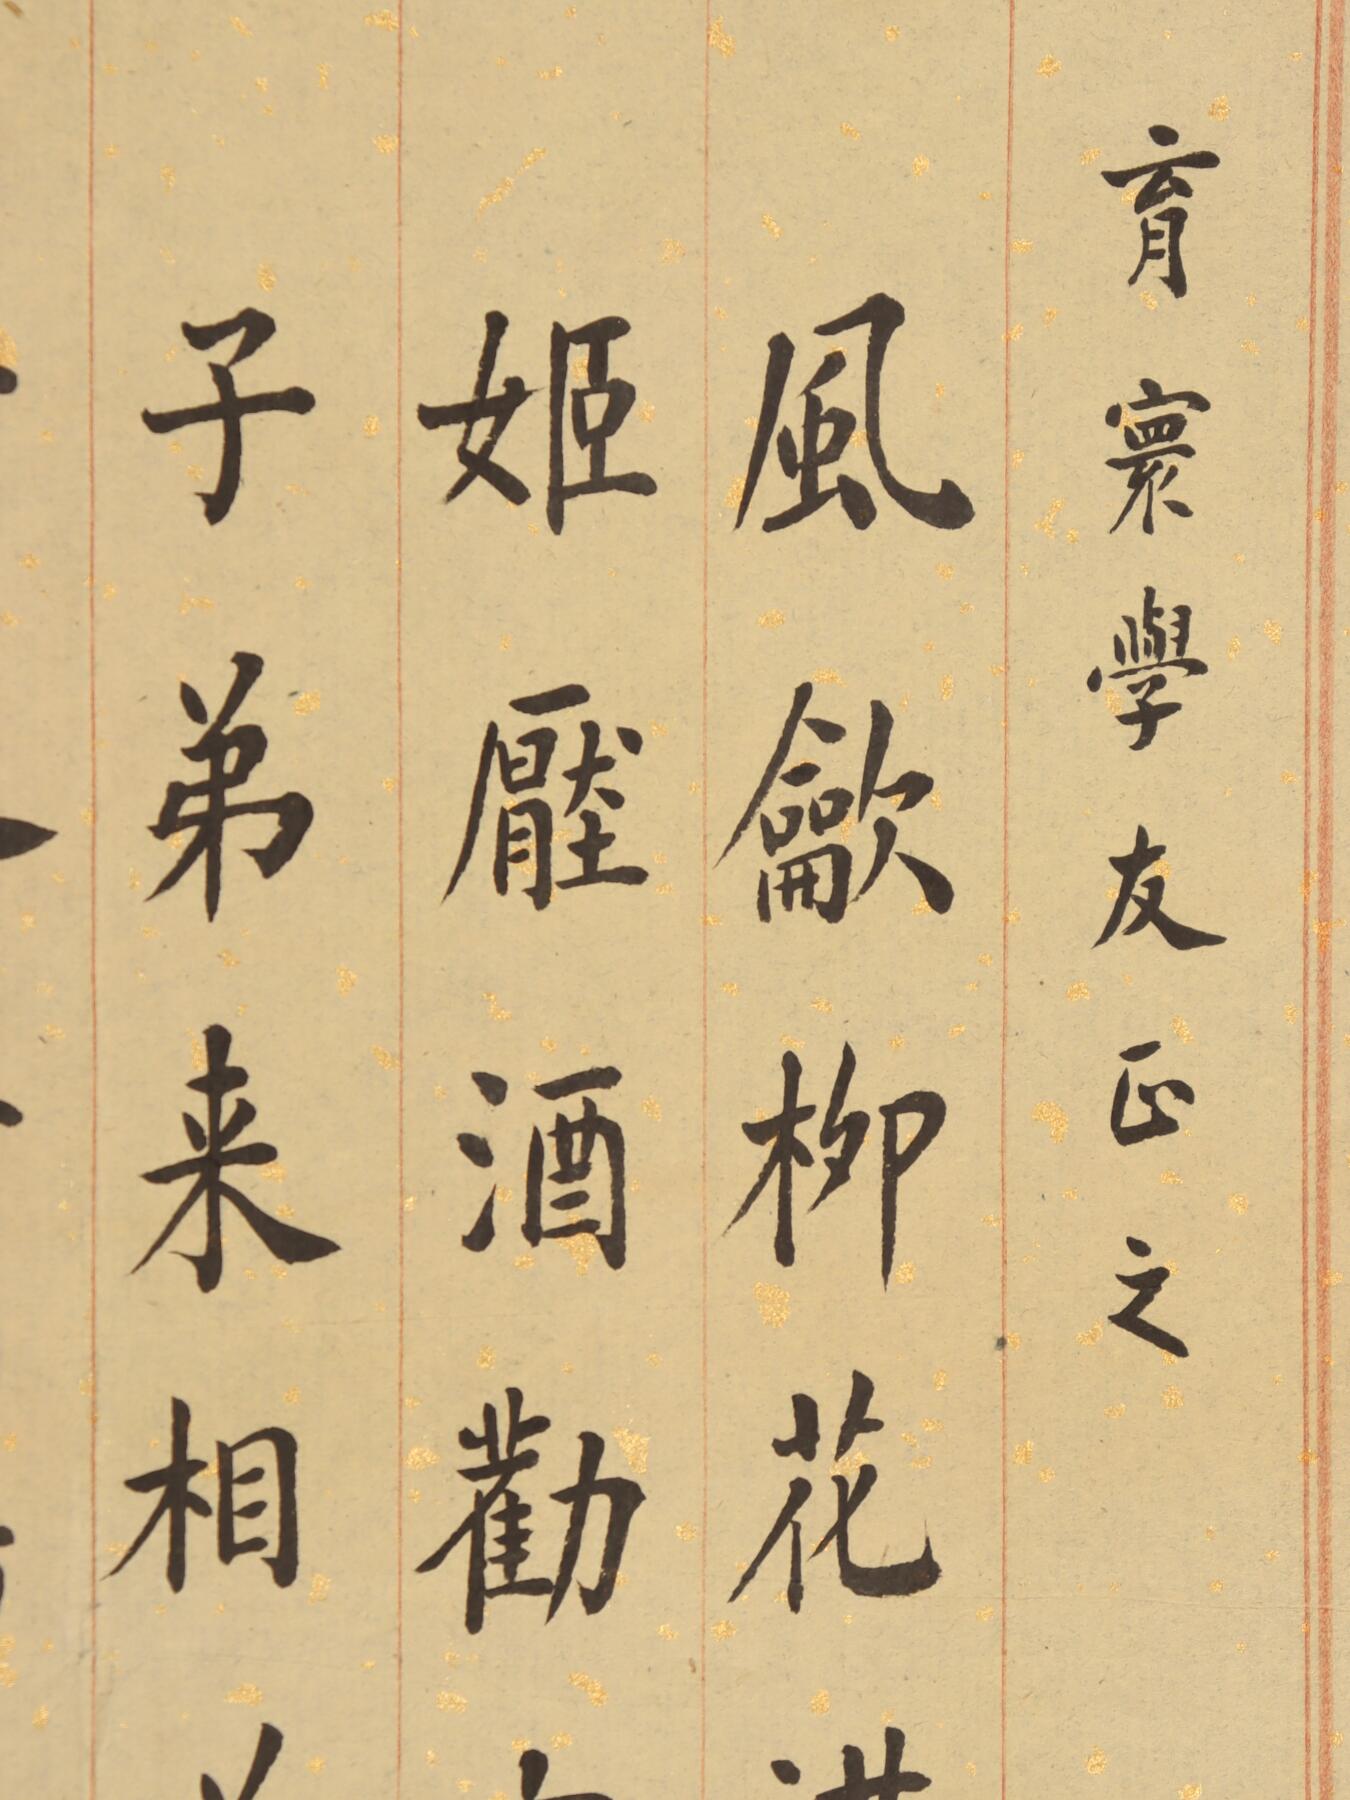 育寰學友正之
風龡柳花
姬壓酒勸
子弟来相